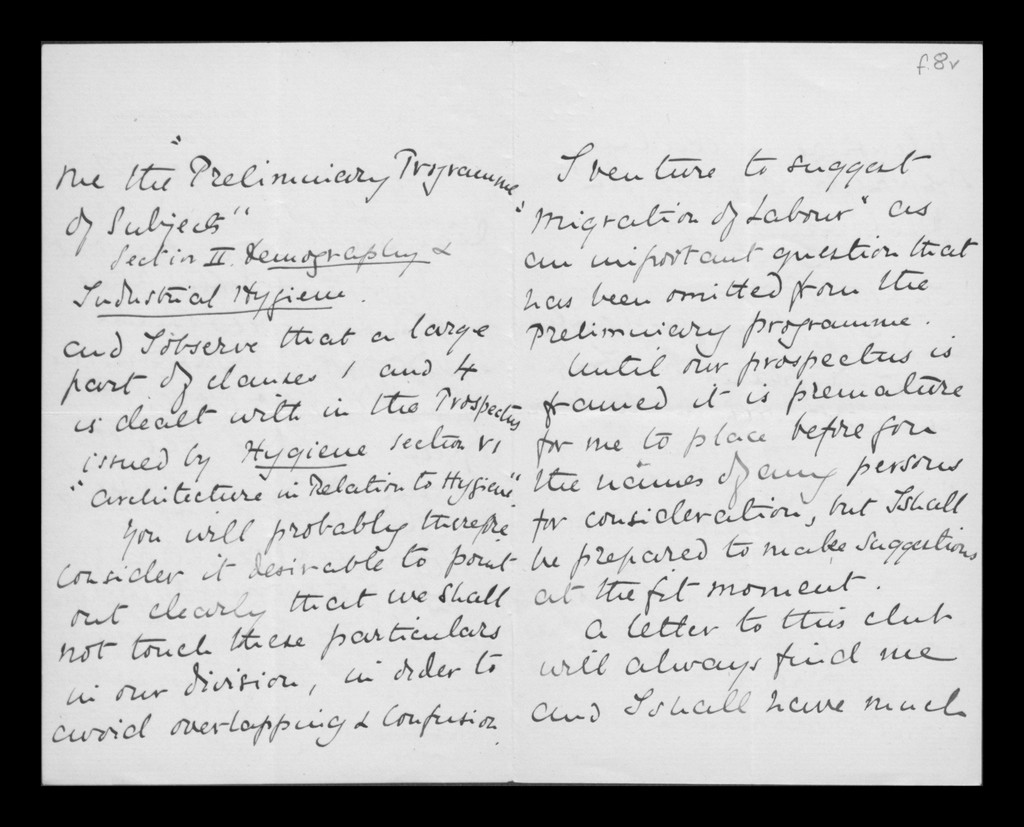 f.8v
me the "Preliminary Programme
of Subjects"
Section II. Demography &
Industrial Hygiene.
and I observe that a large
part of clauses 1 and 4
is dealt with in the Prospectus
issued by Hygiene section VI
"Architecture in Relation to Hygiene"
You will probably therefore
consider it desirable to point
out clearly that we shall
not touch these particulars
in our division, in order to
avoid overlapping & confusion.
I venture to suggest
"Migration of Labour" as
an important question that
has been omitted from the
Preliminary programme.
Until our prospectus is
framed it is premature
for me to place before you
the names of any persons
for consideration, but I shall
be prepared to make suggestions
at the fit moment.
A letter to this club
will always find me
and I shall have much